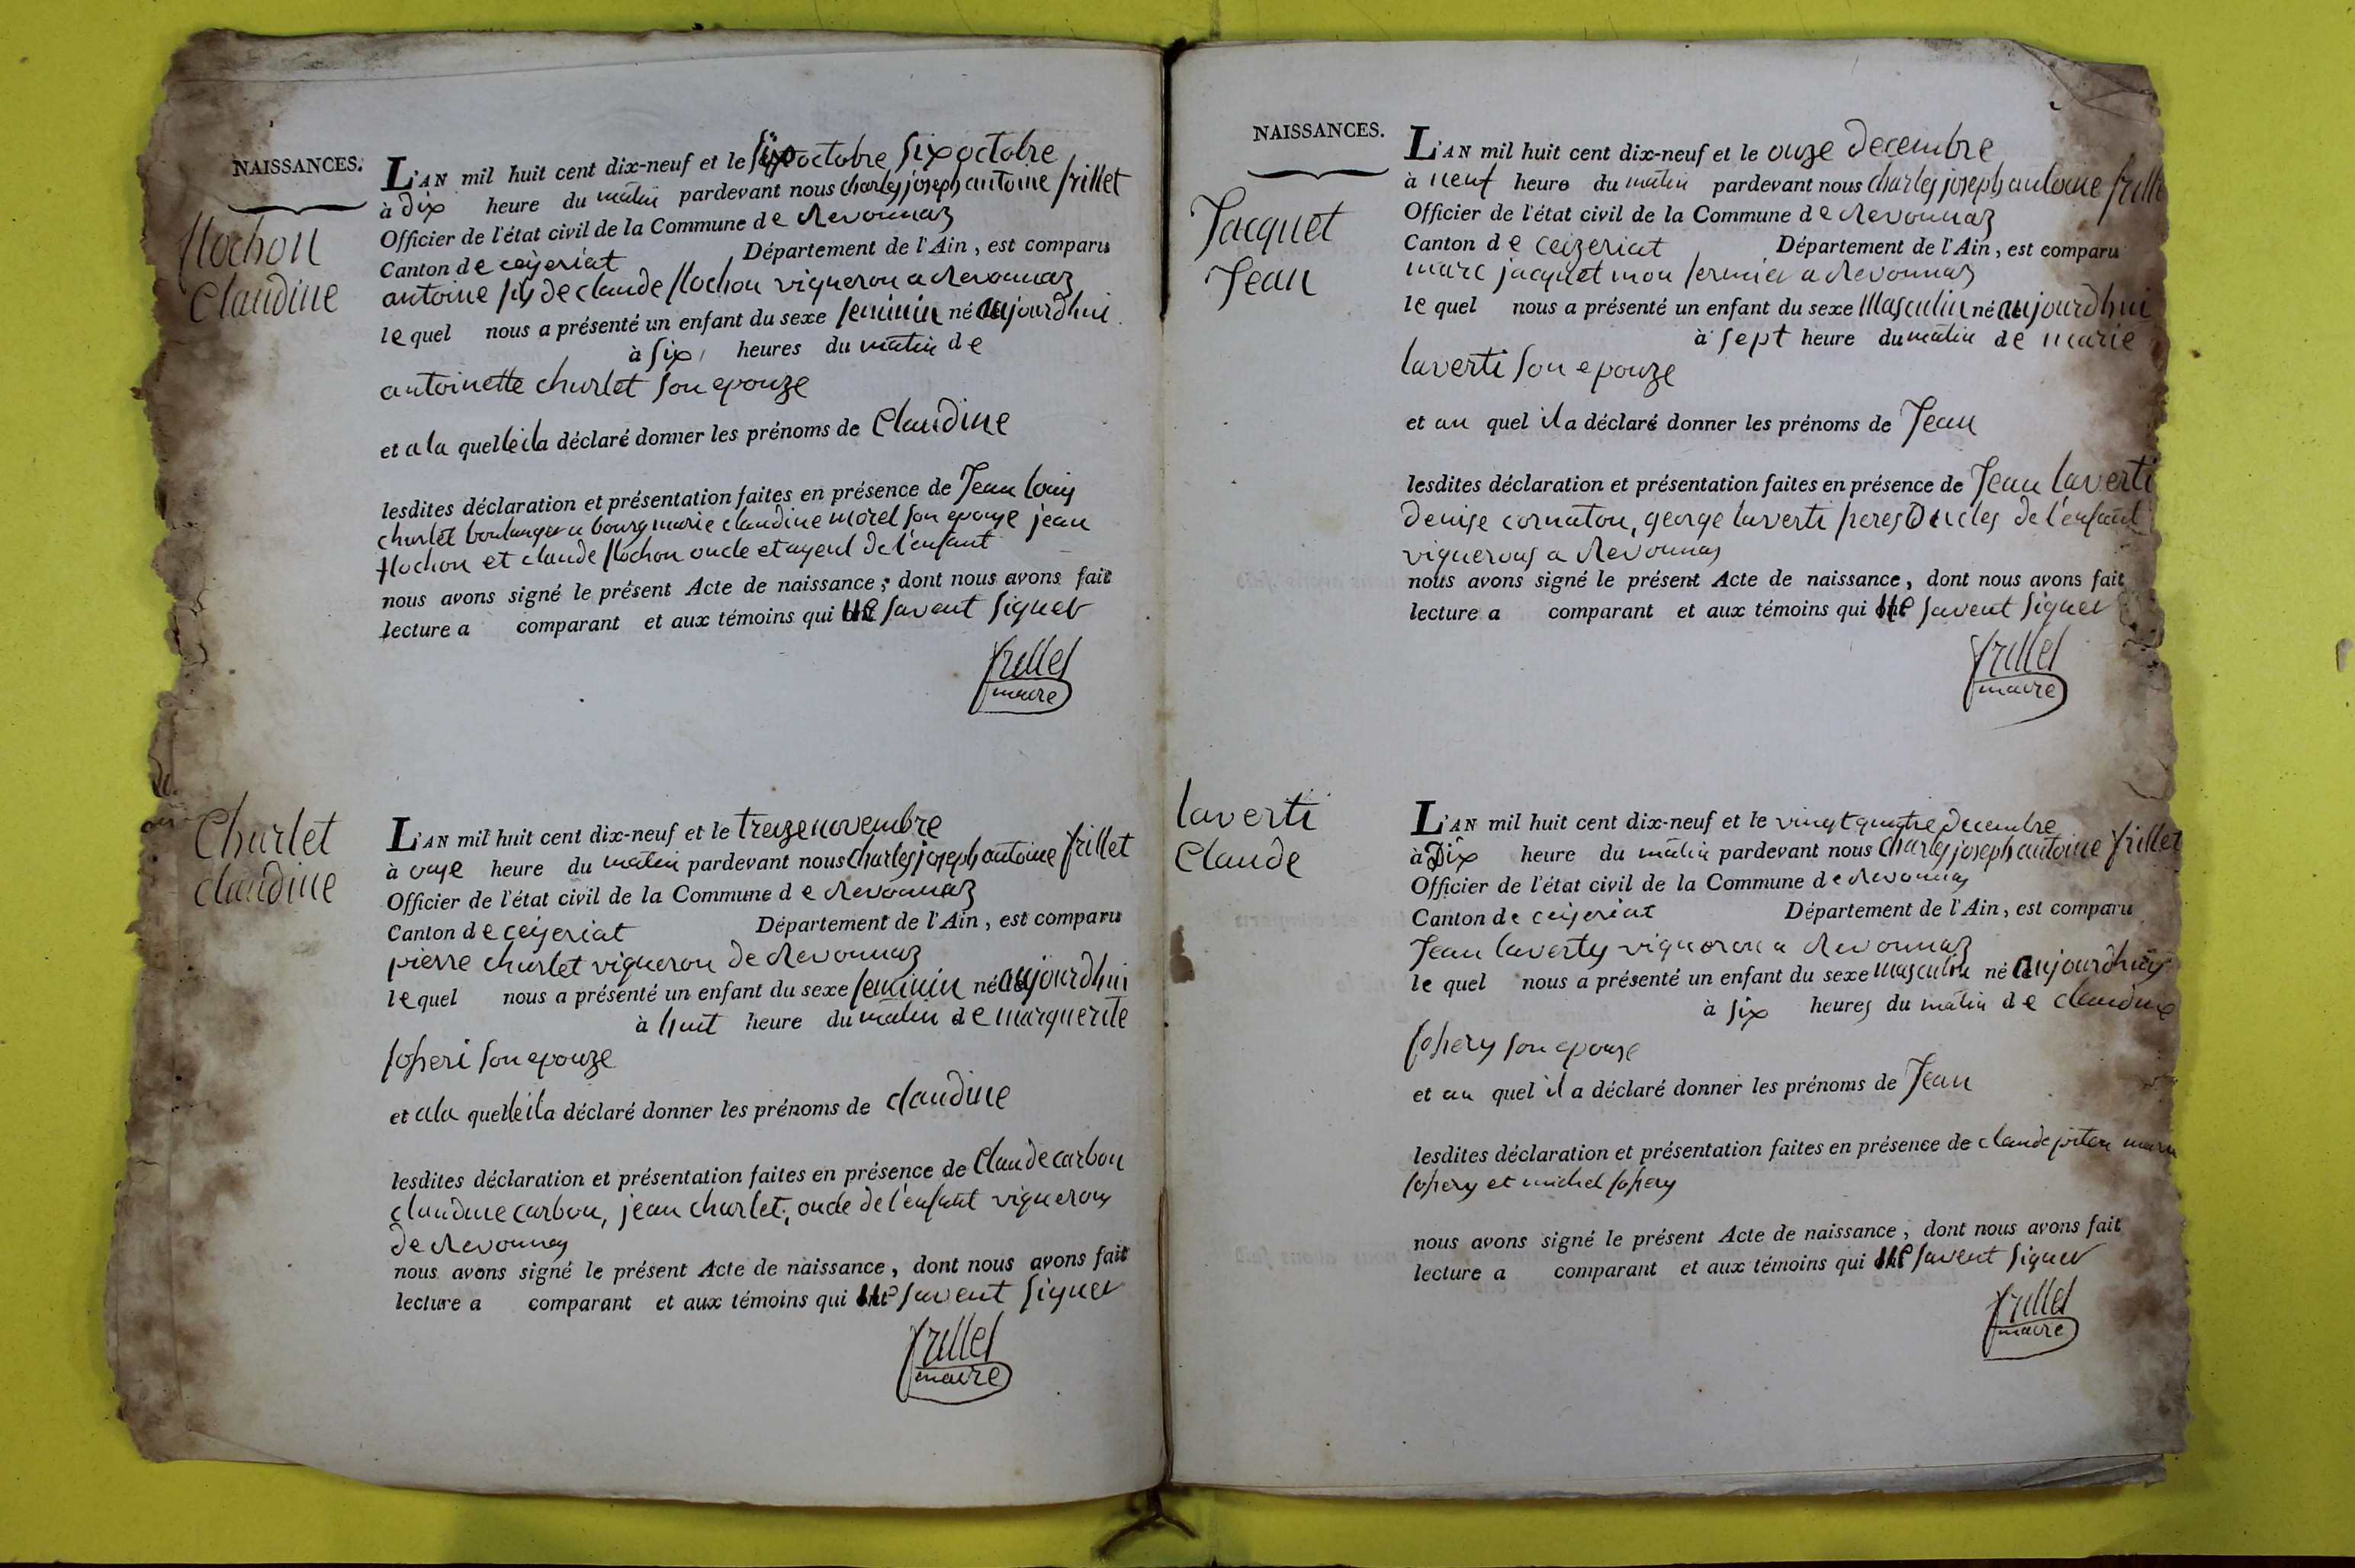 NAISSANCES.
flochon
Claudine
L'AN mil huit cent dix-neuf et le six octobre six octobre
à dix heure du matin pardevant nous charles joseph antoine frillet
Officier de l'état civil de la Commune de Revonnaz
Canton de ceyzeriat Département de l'Ain, est comparu
antoine fils de claude flochon vigneron a Revonnaz
le quel nous a présenté un enfant du sexe feminin né aujourdhui
à six heures du matin de
antoinette churlet son epouze
et a la quelle il a déclaré donner les prénoms de Claudine
lesdites déclaration et présentation faites en présence de Jean louis
churlet boulanger a bourg marie claudine morel son epouze jean
flochon et claude flochon oncle et ayeul de l'enfant
nous avons signé le présent Acte de naissance; dont nous avons fait
lecture a comparant et aux témoins qui ne savent signer
frillet
maire
Churlet
claudine
L'AN mil huit cent dix-neuf et le treize novembre
à onze heure du matin pardevant nous Charles joseph antoine frillet
Officier de l'état civil de la Commune de Revonnaz
Canton de ceyzeriat Département de l'Ain, est comparu
pierre churlet vigneron de Revonnaz
le quel nous a présenté un enfant du sexe feminin né aujourdhui
à huit heure du matin de marguerite
soperi son epouze
et a la quelle il a déclaré donner les prénoms de claudine
lesdites déclaration et présentation faites en présence de Claude carbon
claudine carbon, jean churlet, oncle de l'enfant vignerons
de Revonnas
nous avons signé le présent Acte de naissance, dont nous avons fait
lecture a comparant et aux témoins qui ne savent signer
frillet
maire
NAISSANCES.
Jacquet
Jean
L'AN mil huit cent dix-neuf et le onze decembre
à neuf heure du matin pardevant nous charles joseph antoine frillet
Officier de l'état civil de la Commune de Revonnaz
Canton de ceizeriat Département de l'Ain, est comparu
marc jacquet mon fermier a Revonnaz
le quel nous a présenté un enfant du sexe Masculin né aujourdhui
à sept heure du matin de marie
laverti son epouze
et au quel il a déclaré donner les prénoms de Jean
lesdites déclaration et présentation faites en présence de Jean laverti
denise cornaton, george laverti Oncles de l'enfant
vignerons a Revonnas
nous avons signé le présent Acte de naissance, dont nous avons fait
lecture a comparant et aux témoins qui ne savent signer
frillet
maire
laverti
Claude
L'AN mil huit cent dix-neuf et le vingt quatre decembre
à Dix heure du matin pardevant nous Charles joseph antoine frillet
Officier de l'état civil de la Commune de Revonnas
Canton de ceyzeriat Département de l'Ain, est comparu
Jean laverty vigneron a Revonnaz
le quel nous a présenté un enfant du sexe masculin né aujourdhuy
à six heures du matin de claudine
sopery son epouze
et au quel il a déclaré donner les prénoms de Jean
lesdites déclaration et présentation faites en présence de claude
sopery et michel sopery
nous avons signé le présent Acte de naissance, dont nous avons fait
lecture a comparant et aux témoins qui ne savent signer
frillet
maire